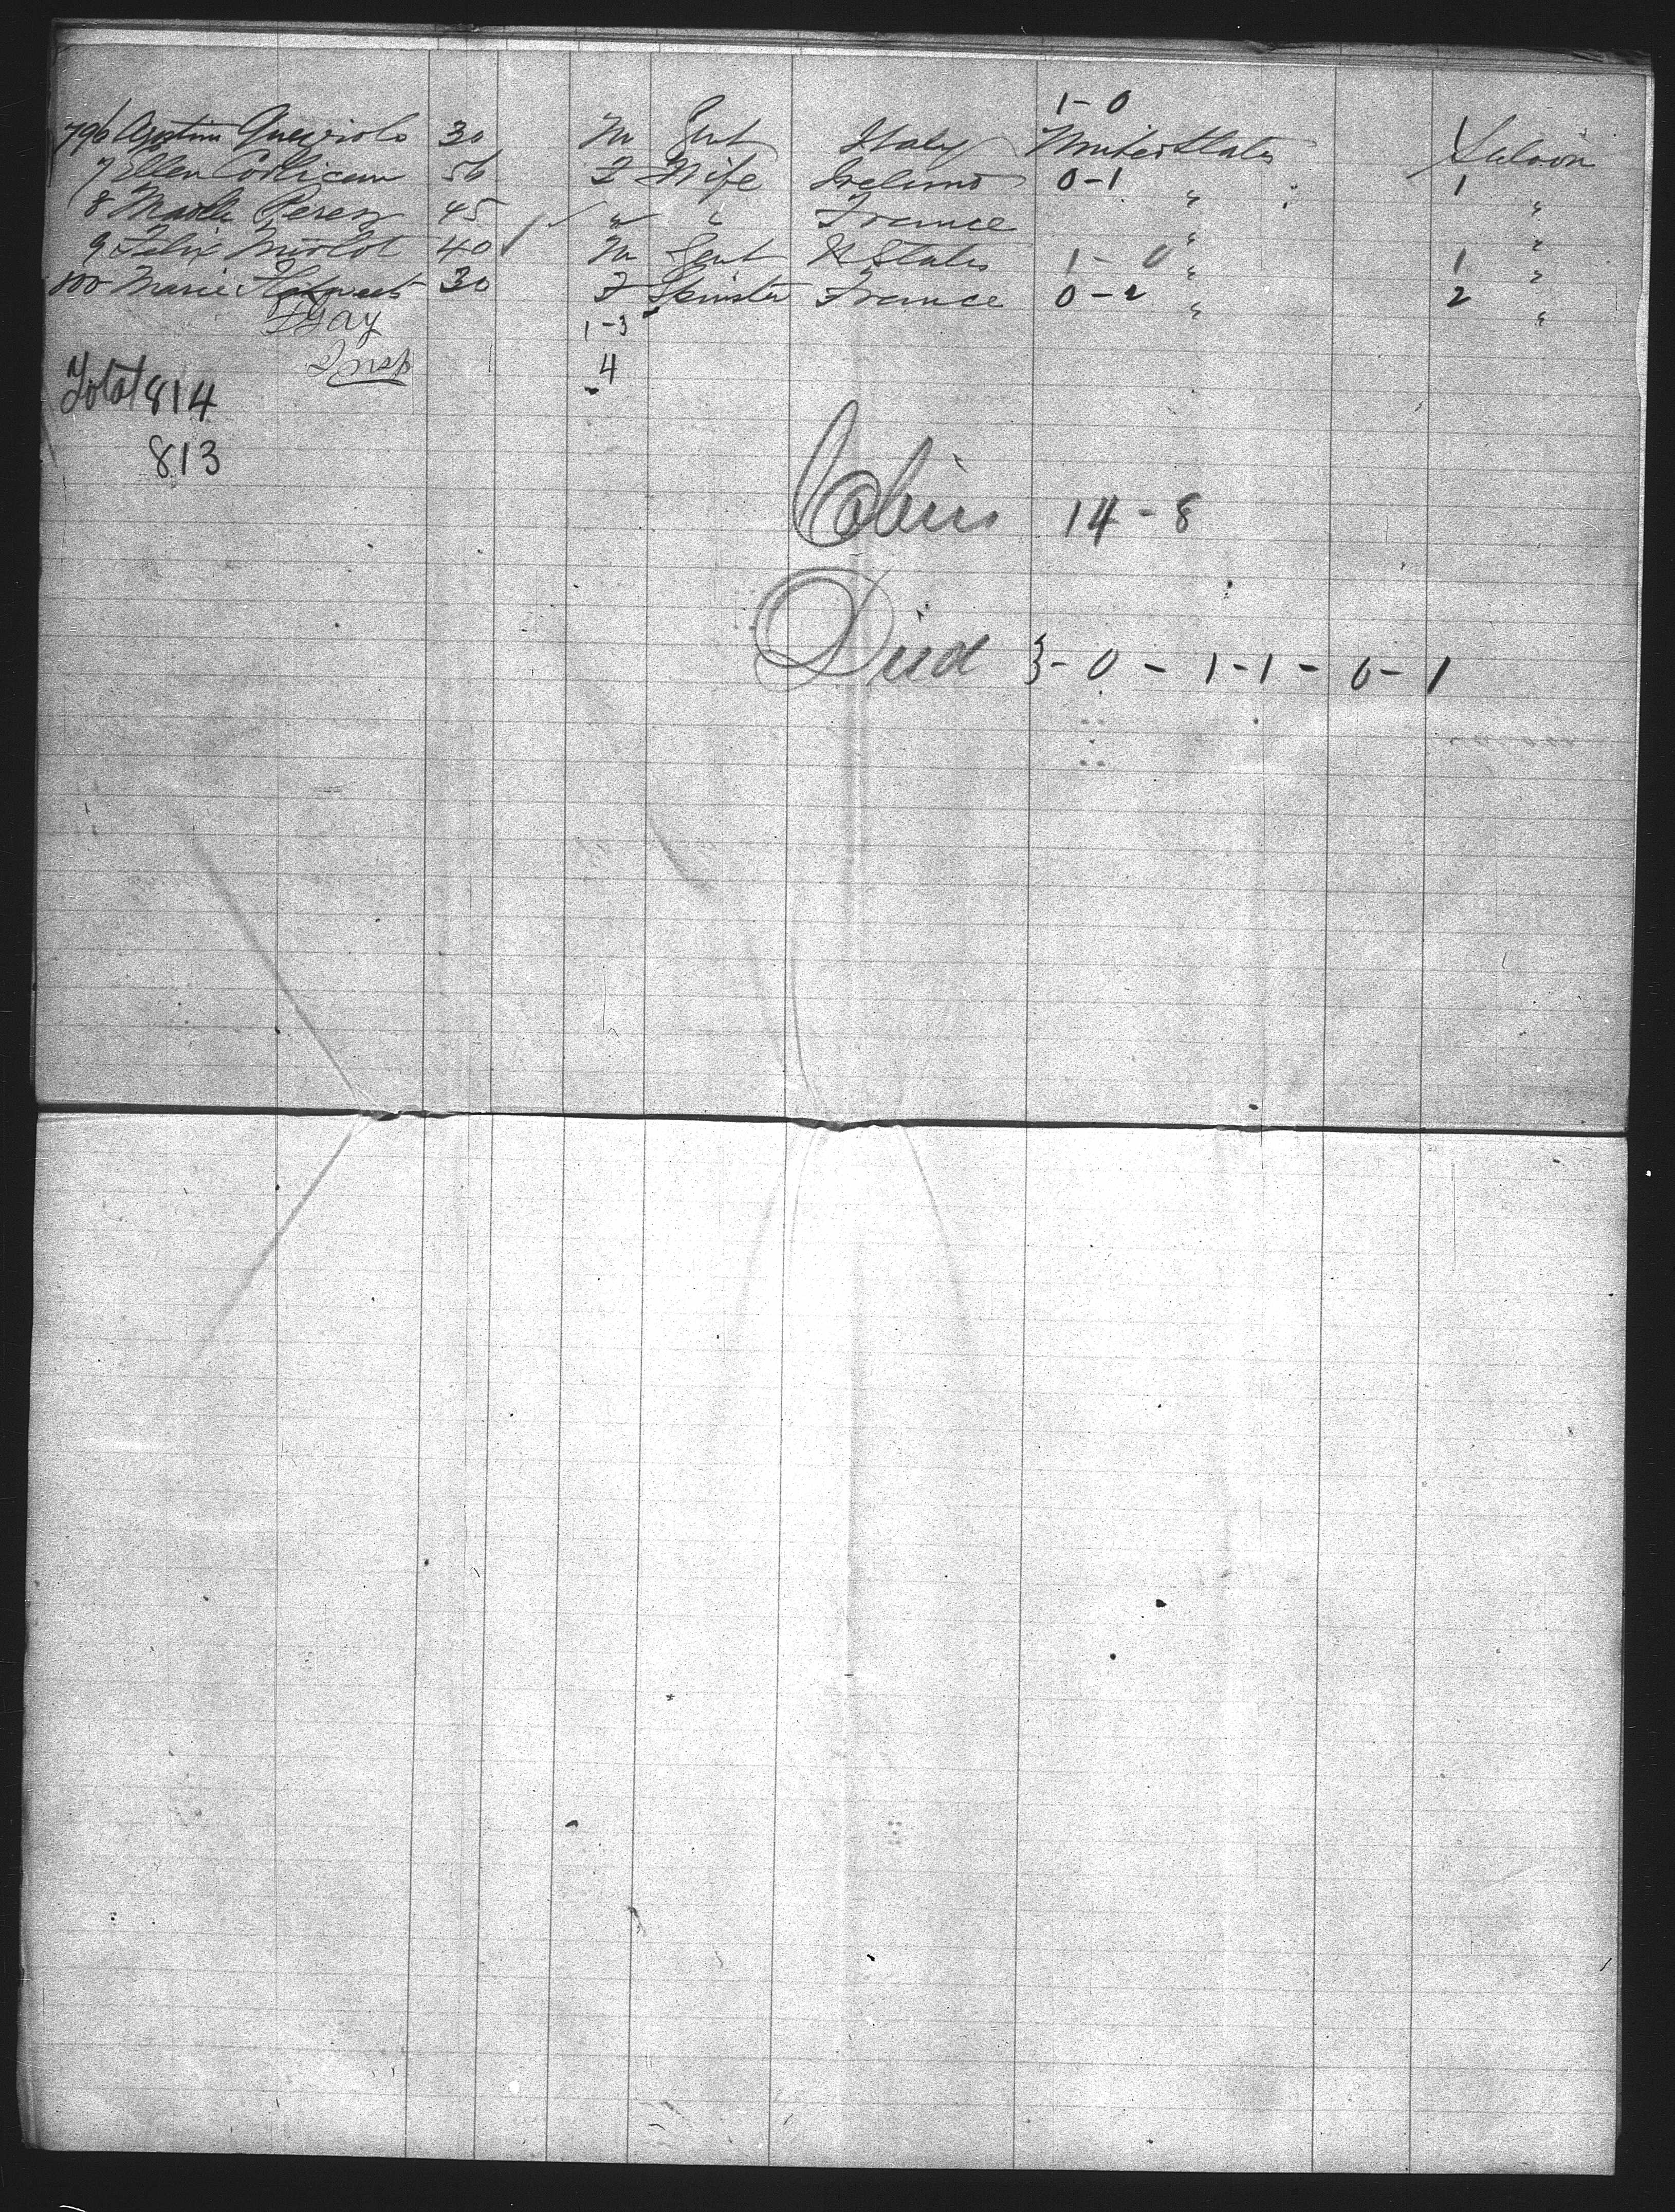 1-0
796 Agostino 30 M Gent Italy United States Saloon
7 Ellen 56 F Wife Ireland 0-1 " 1 "
8 Perez 45 " " France " "
9 Felix 40 M Gent U States 1-0 " 1 "
800 Marie 30 F Spinster France 0-2 " 2 "
F Gay 1-3
Insp 4
Total 814
813
Cabin 14-8
Died 3-0-1-1-0-1